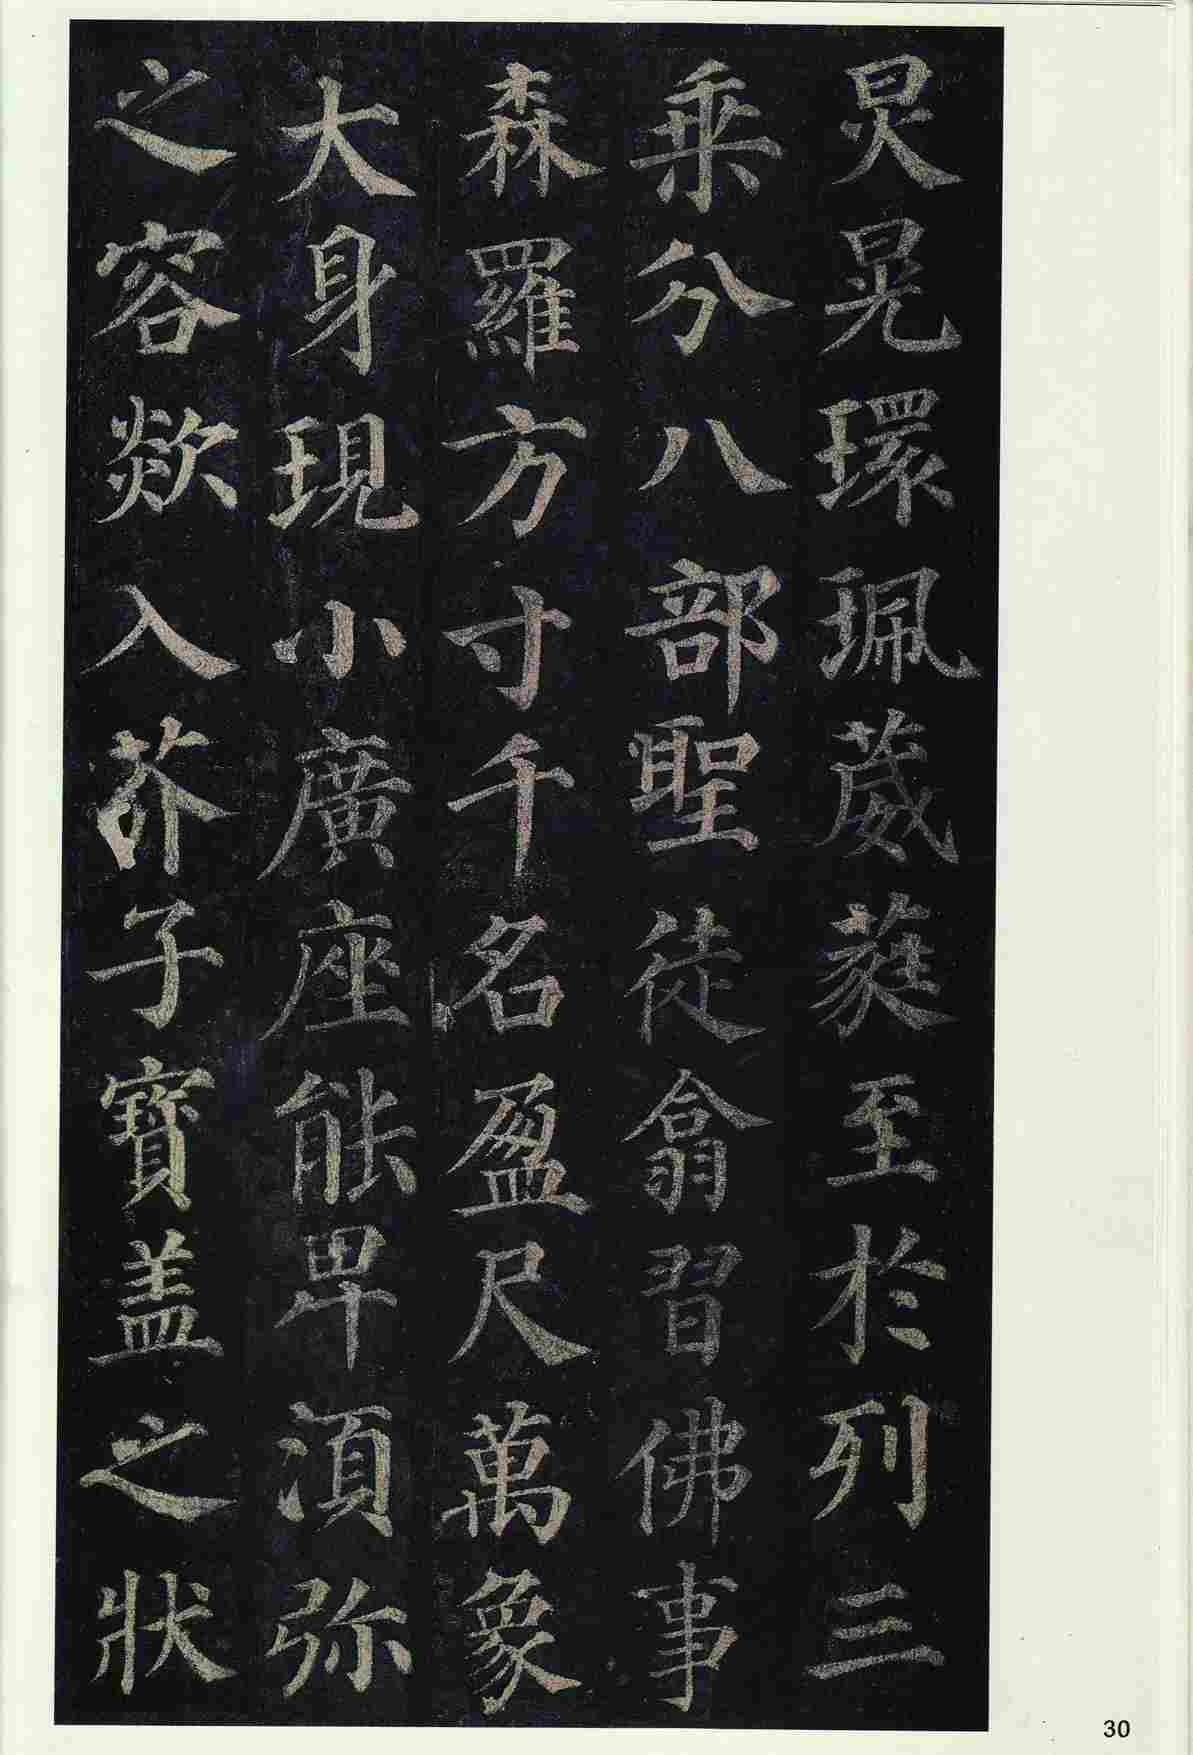 炅晃環珮葳蕤至於列三
乗分八部聖徒翕習佛事
森羅方寸千名盈尺萬象
大身現小廣座能卑湏弥
之容欻入芥子寶盖之狀
30